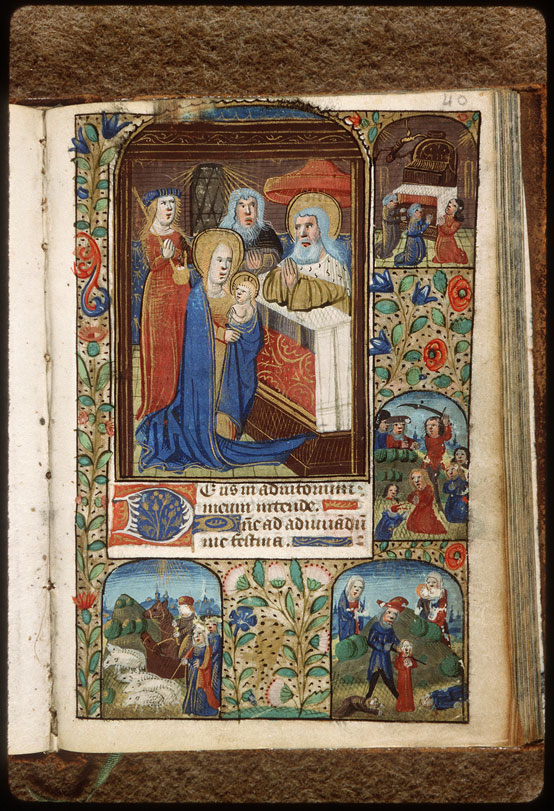 40
Deus in adiutorium
meum intende.
Dñe ad adiuuandũ
me festina.